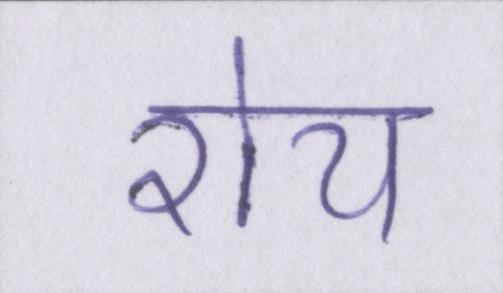 रोय